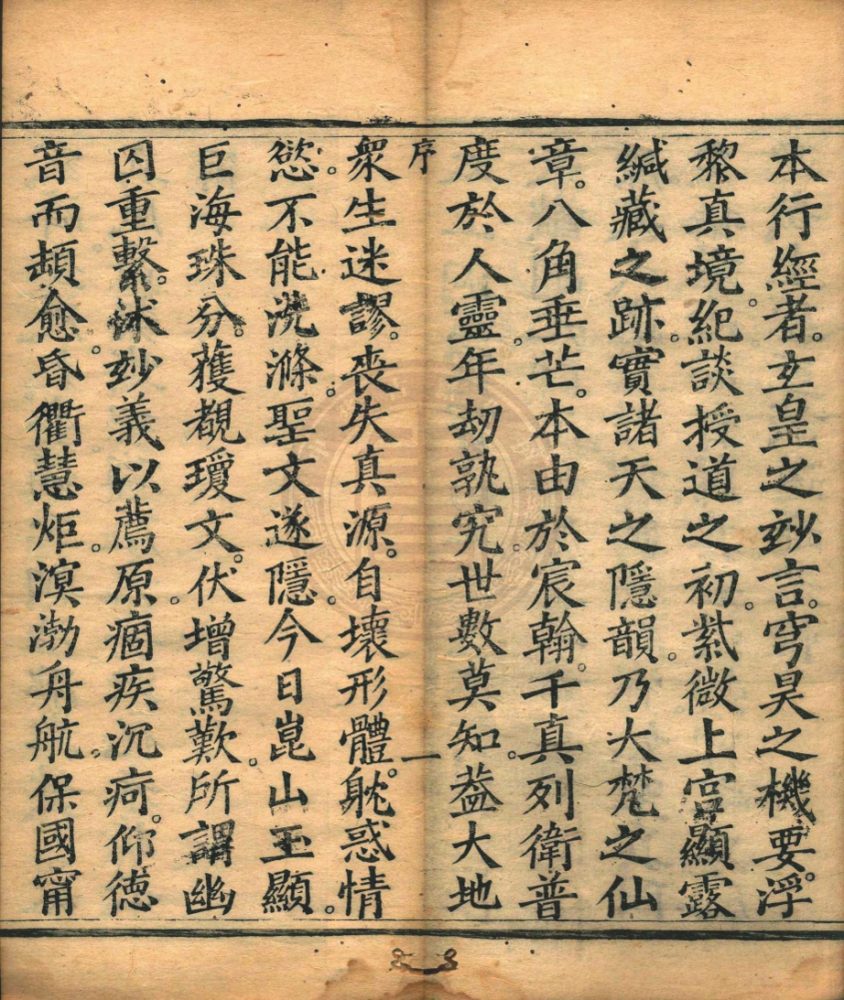 本行經者。玄皇之妙言。穹昊之機要。浮
黎真境。紀談授道之初。紫微上宮。顯露
緘藏之跡。實諸天之隱韻。乃大梵之仙
章。八角垂芒。本由於宸翰。千真列衛。普
度於人靈。年劫孰究。世數莫知。葢大地
序
一
衆生迷謬。喪失真源。自壞形體。躭惑情
慾。不能洗滌。聖文遂隱。今日崑山玉顯。
巨海珠分。獲覩瓊文。伏增驚歎。所謂幽
囚重繫。沭妙義以薦原。痼疾沉疴。仰德
音而頓愈。昏衢慧炬。溟渤舟航。保國甯